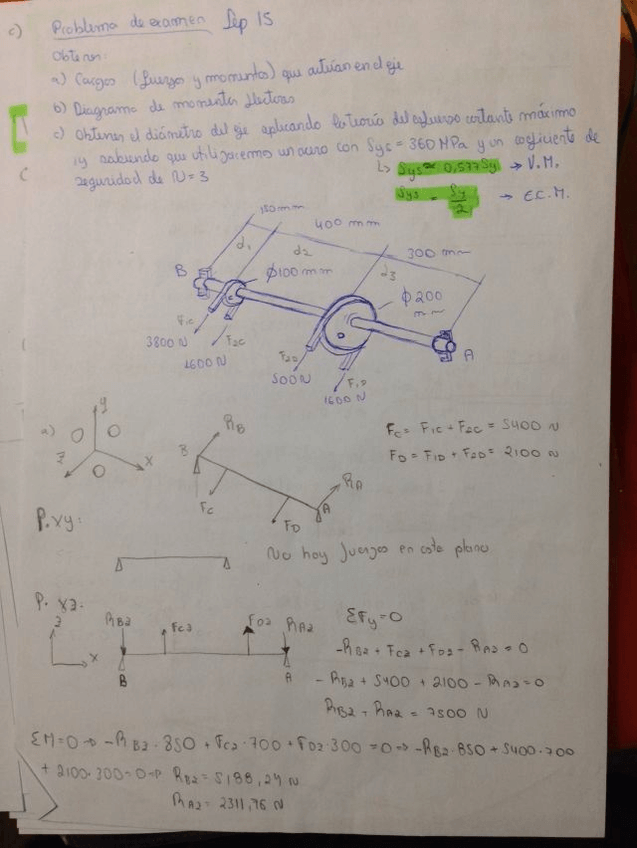 c) Problema de examen Sep 15
Obtener:
a) Cargas (fuerzas y momentos) que actúan en el eje
b) Diagrama de momentos flectores
c) Obtener el diámetro del eje aplicando la teoría del esfuerzo cortante máximo
y sabiendo que utilizaremos un acero con Sys = 360 MPa y un coeficiente de
seguridad de N = 3
↳ Sys ≈ 0,577 Sy → V.M.
Sys = Sy/2 → E.C.M.
C
150 mm
400 mm
300 mm
d1
d2
d3
B
ϕ100 mm
ϕ200
mm
F1C
3800 N
F2C
1600 N
F2D
500 N
F1D
1600 N
A
a)
y
z
x
RB
B
FC
FD
RA
A
FC = F1C + F2C = 5400 N
FD = F1D + F2D = 2100 N
P. xy:
No hay fuerzas en este plano
P. xz:
z
x
RBz
FCz
FDz
RAz
B
A
ΣFy = 0
-RBz + FCz + FDz - RAz = 0
-RBz + 5400 + 2100 - RAz = 0
RBz - RAz = 7500 N
ΣM=0 → -RBz·850 + FCz·700 + FDz·300 = 0 → -RBz·850 + 5400·700
+ 2100·300 = 0 → RBz = 5188,24 N
RAz = 2311,76 N